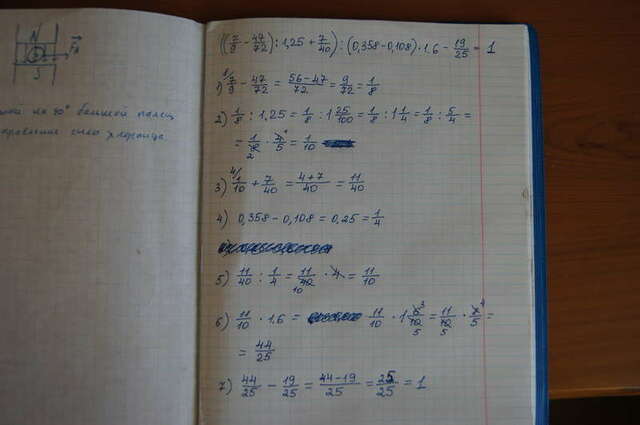 N
S
F
на 90° большой палец
((7/9 - 47/72) : 1,25 + 7/40) : (0,358 - 0,108) · 1,6 - 19/25 = 1
1) 7/9 - 47/72 = (56-47)/72 = 9/72 = 1/8
2) 1/8 : 1,25 = 1/8 : 1 25/100 = 1/8 : 1 1/4 = 1/8 : 5/4 =
= 1/8 · 4/5 = 1/10
3) 1/10 + 7/40 = (4+7)/40 = 11/40
4) 0,358 - 0,108 = 0,25 = 1/4
5) 11/40 : 1/4 = 11/40 · 4 = 11/10
6) 11/10 · 1,6 = 11/10 · 1 6/10 = 11/10 · 8/5 =
= 44/25
7) 44/25 - 19/25 = (44-19)/25 = 25/25 = 1